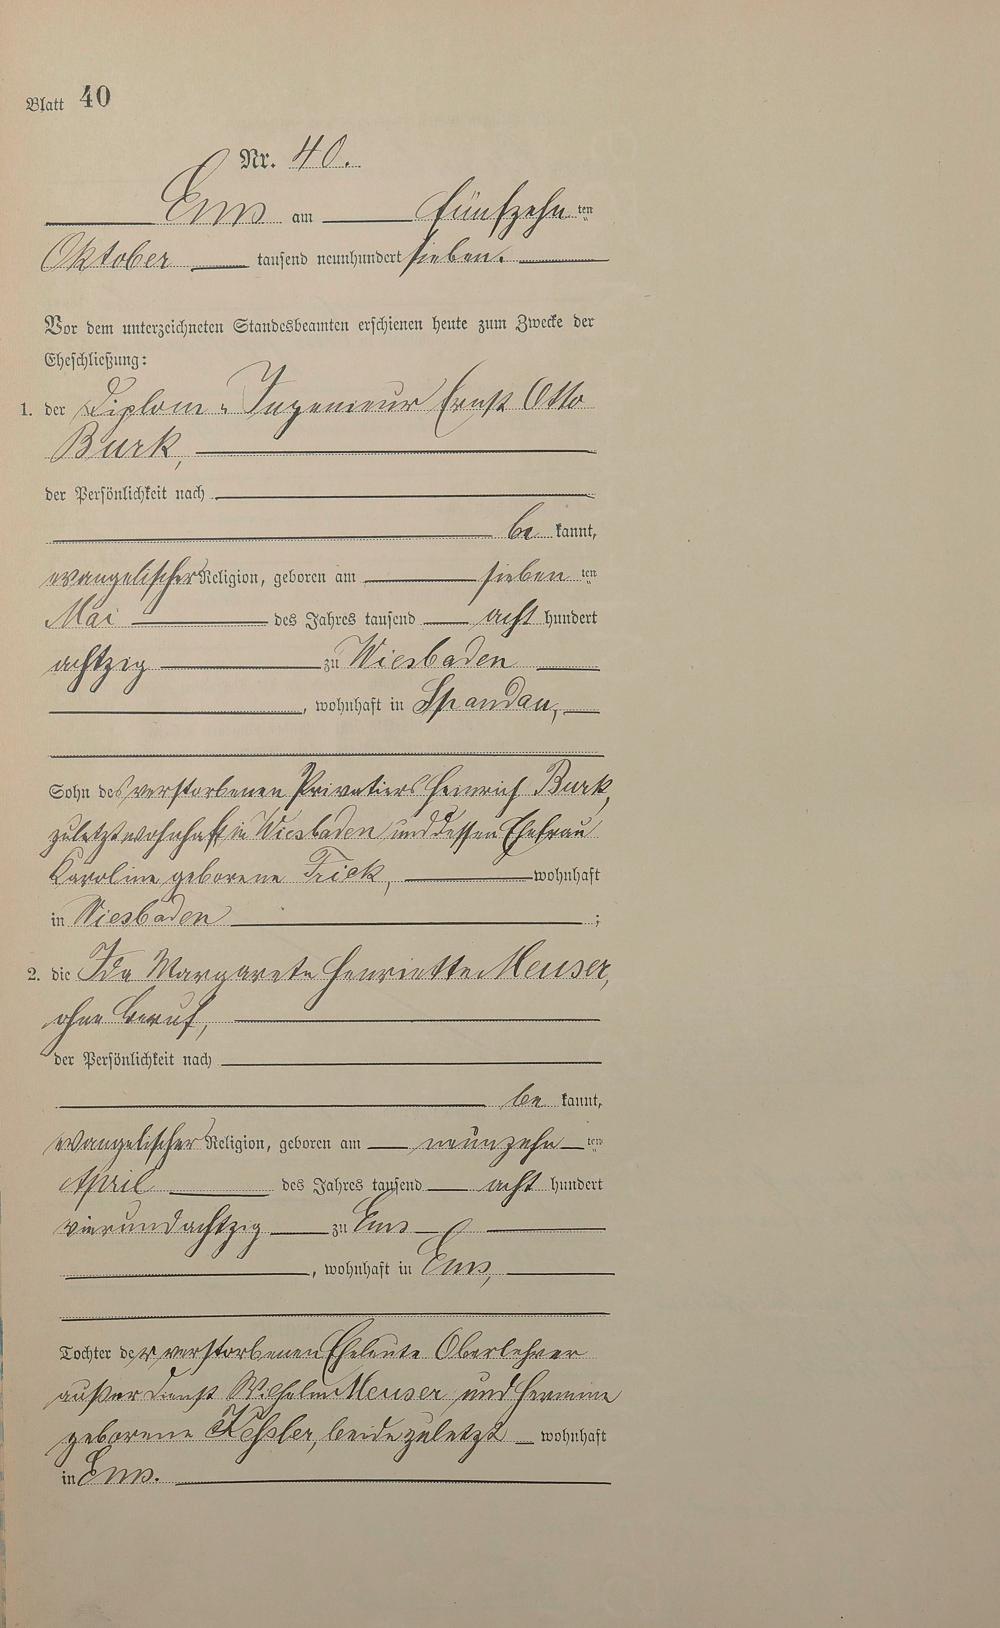 Blatt 40
Nr. 40.
Ems am fünfzehn ten
Oktober tausend neunhundert sieben.
Vor dem unterzeichneten Standesbeamten erschienen heute zum Zwecke der
Eheschließung:
1. der Diplom-Ingenieur Ernst Otto
Burk,
der Persönlichkeit nach
be kannt,
evangelischer Religion, geboren am sieben ten
Mai des Jahres tausend acht hundert
achtzig zu Wiesbaden
, wohnhaft in Spandau,
Sohn des verstorbenen Privatiers Heinrich Burk,
zuletzt wohnhaft in Wiesbaden und dessen Ehefrau
Karoline geborene Frick, wohnhaft
in Wiesbaden ;
2. die Ida Margarete Henriette Meuser,
ohne Beruf,
der Persönlichkeit nach
be kannt,
evangelischer Religion, geboren am neunzehn ten
April des Jahres tausend acht hundert
vierundachtzig zu Ems
, wohnhaft in Ems,
Tochter der verstorbenen Eheleute Oberlehrer
außer Dienst Wilhelm Meuser und Hermine
geborene Keßler, beide zuletzt wohnhaft
in Ems.